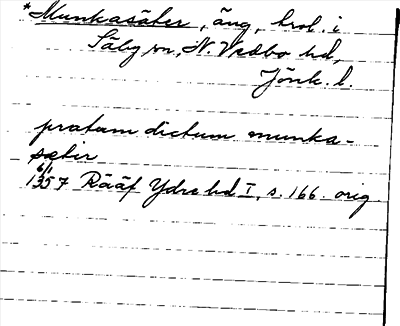 *Munkasäter, äng, hvol. i
Säby sn, N. Vedbo hd,
Jönk. l.
pratum dictum munka-
sætir
6/1
1357 Rääf Ydre hd I, s. 166. orig